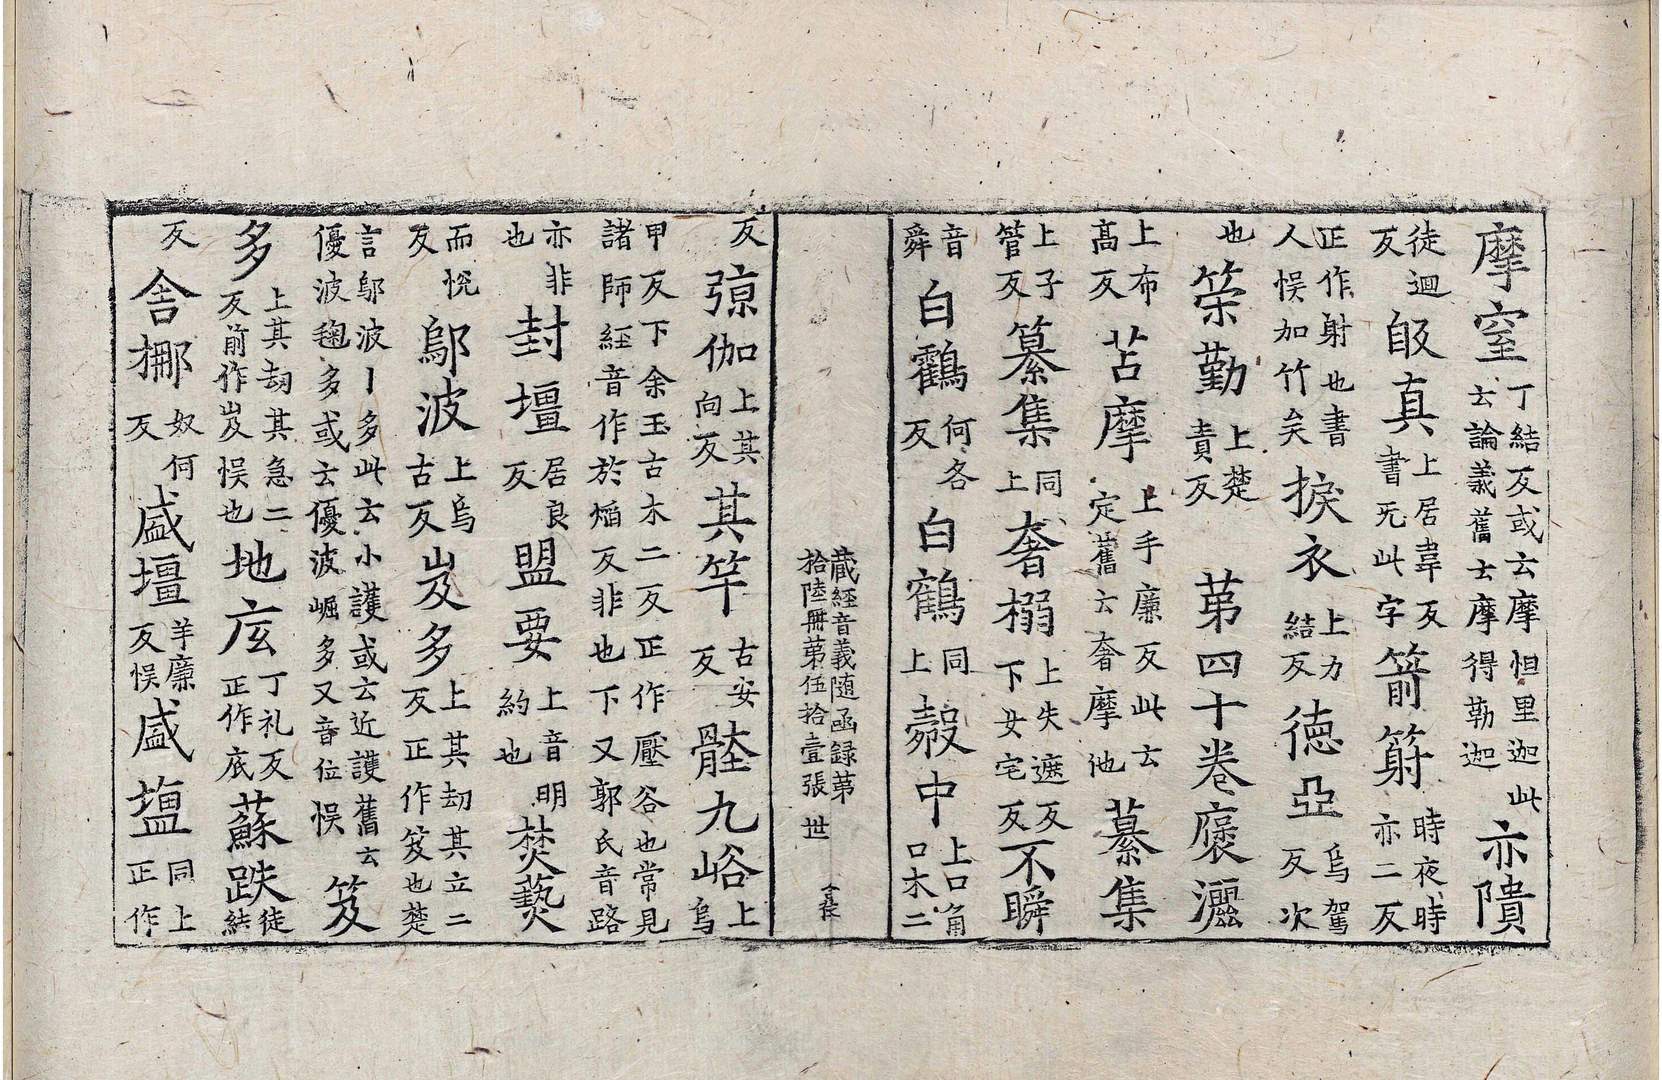 摩窒丁結反或云摩怛里迦此云論義舊云摩得勒迦亦隤
徒迴反皈真上居韋反書无此字箭䈠時夜時亦二反
正作射也書人悮加竹矣捩衣上力結反德亞烏駕反次
也筞勤上楚責反第四十卷襃灑
上布高反苫摩上手廉反此云定舊云奢摩他綦集
上子管反纂集同上奢搦上失遮反下女宅反不瞬
音舜白鸖何各反白鶴同上㲉中上口角口木二
藏經音義随函録第拾陸冊第伍拾壹張世
反弶伽上其向反其竿古安反髊九峪上烏
甲反下余玉古木二反正作壓谷也常見諸師經音作於焰反非也下又郭氏音路
亦非也封壃居良反盟要上音明約也焚爇
而悅反鄔波上烏古反岌多上其劫其立二反正作笈也楚
言鄔波丨多此云小護或云近護舊云優波毱多或云優波崛多又音位悮笈
多上其劫其急二反前作岌悮也地㡳丁礼反正作底蘇跌徒結
反舍挪奴何反盛壃羊廉反悮盛塩同上正作